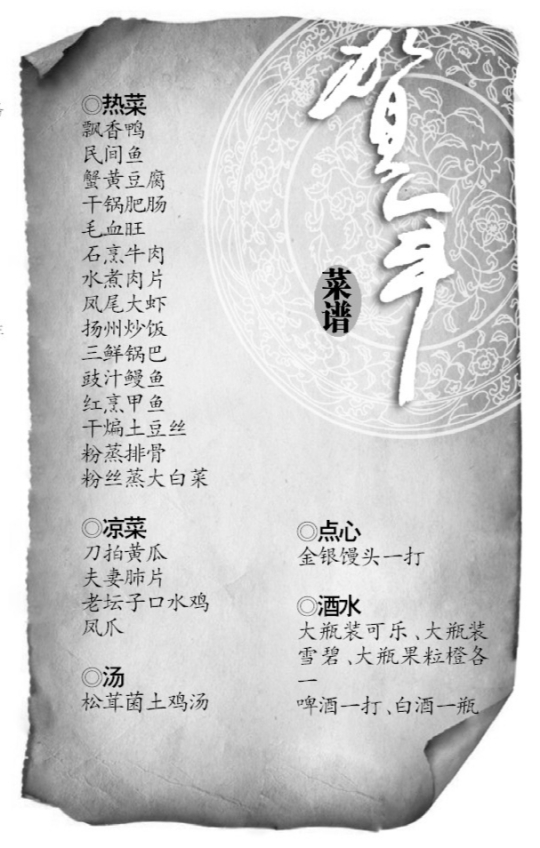 贺年
菜谱
◎热菜
飘香鸭
民间鱼
蟹黄豆腐
干锅肥肠
毛血旺
石烹牛肉
水煮肉片
凤尾大虾
扬州炒饭
三鲜锅巴
豉汁鳗鱼
红烹甲鱼
干煸土豆丝
粉蒸排骨
粉丝蒸大白菜
◎凉菜
刀拍黄瓜
夫妻肺片
老坛子口水鸡
凤爪
◎汤
松茸菌土鸡汤
◎点心
金银馒头一打
◎酒水
大瓶装可乐、大瓶装
雪碧、大瓶果粒橙各
一
啤酒一打、白酒一瓶